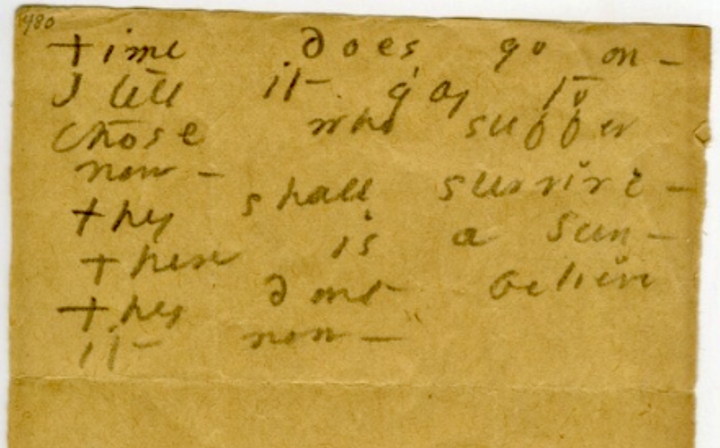 480
Time does go on -
I tell it gay to
those who suffer
now -
they shall survive -
there is a sun -
they dont believe
it now -